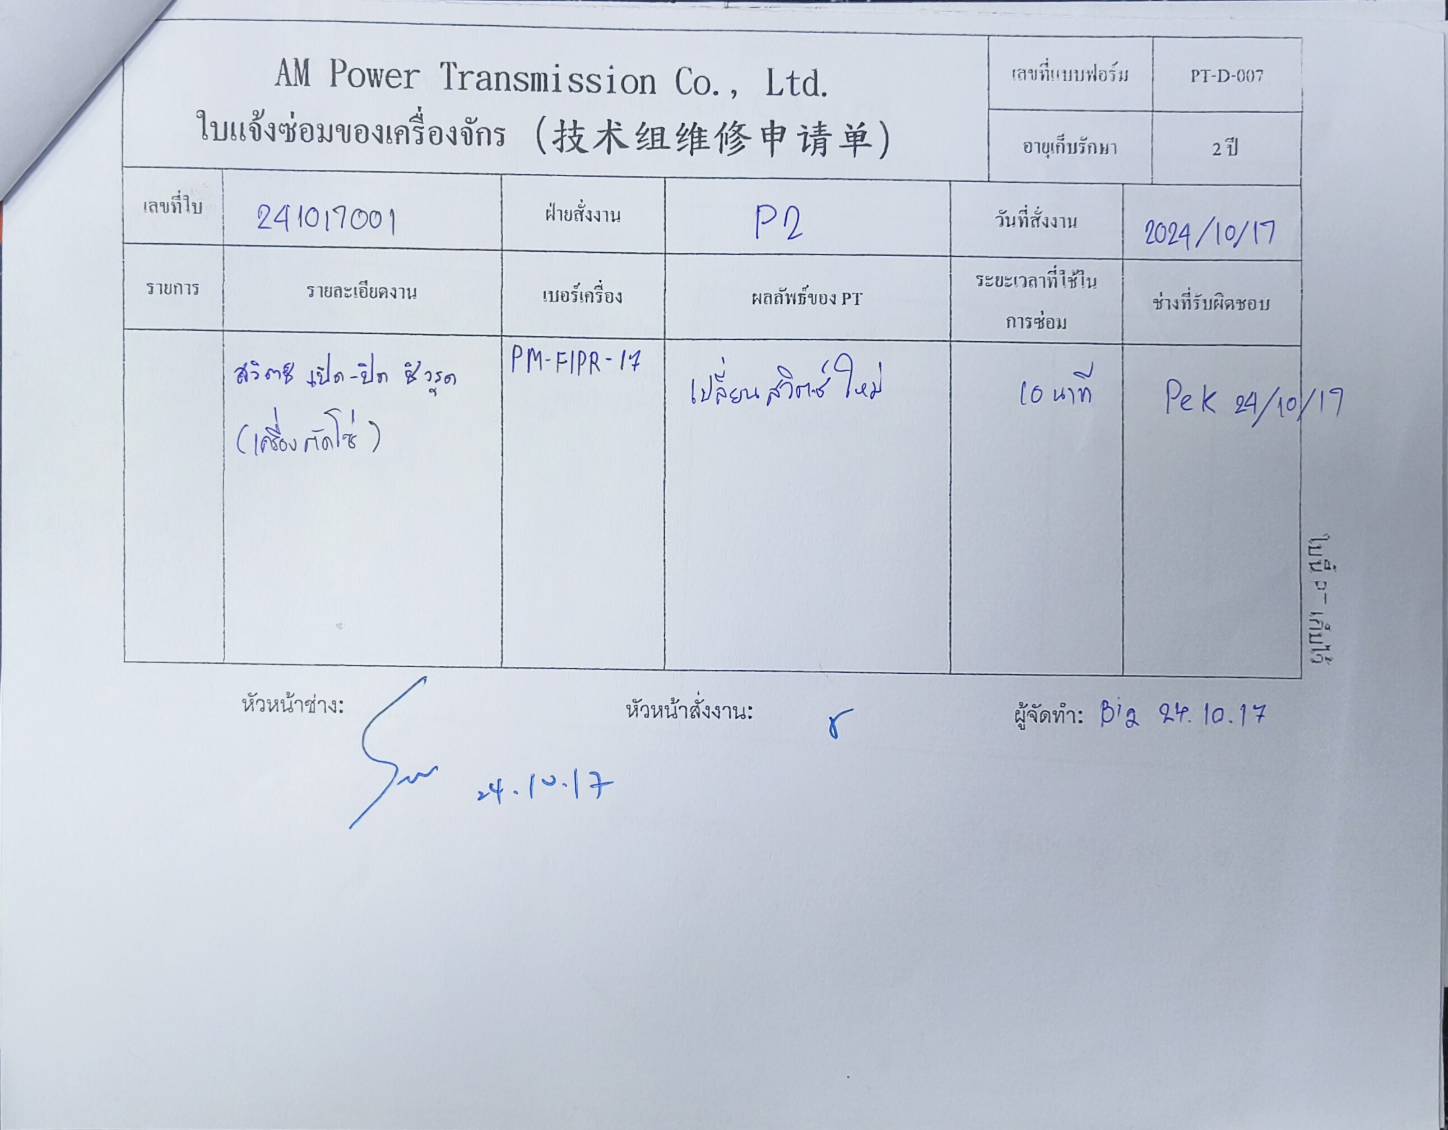 AM Power Transmission Co., Ltd.
ใบแจ้งซ่อมของเครื่องจักร (技术组维修申请单)
เลขที่แบบฟอร์ม PT-D-007
อายุเก็บรักษา 2 ปี
เลขที่ใบ 241017001 ฝ่ายสั่งงาน P2 วันที่สั่งงาน 2024/10/17
รายการ รายละเอียดงาน เบอร์เครื่อง ผลลัพธ์ของ PT ระยะเวลาที่ใช้ใน
การซ่อม ช่างที่รับผิดชอบ
สวิตซ์ เปิด-ปิด ชำรุด PM-FIPR-17 เปลี่ยนสวิตซ์ ใหม่ 10 นาที Pek 24/10/17
(เครื่องตัดโซ่)
หัวหน้าช่าง: หัวหน้าสั่งงาน: ผู้จัดทำ: Big 24.10.17
24.10.17